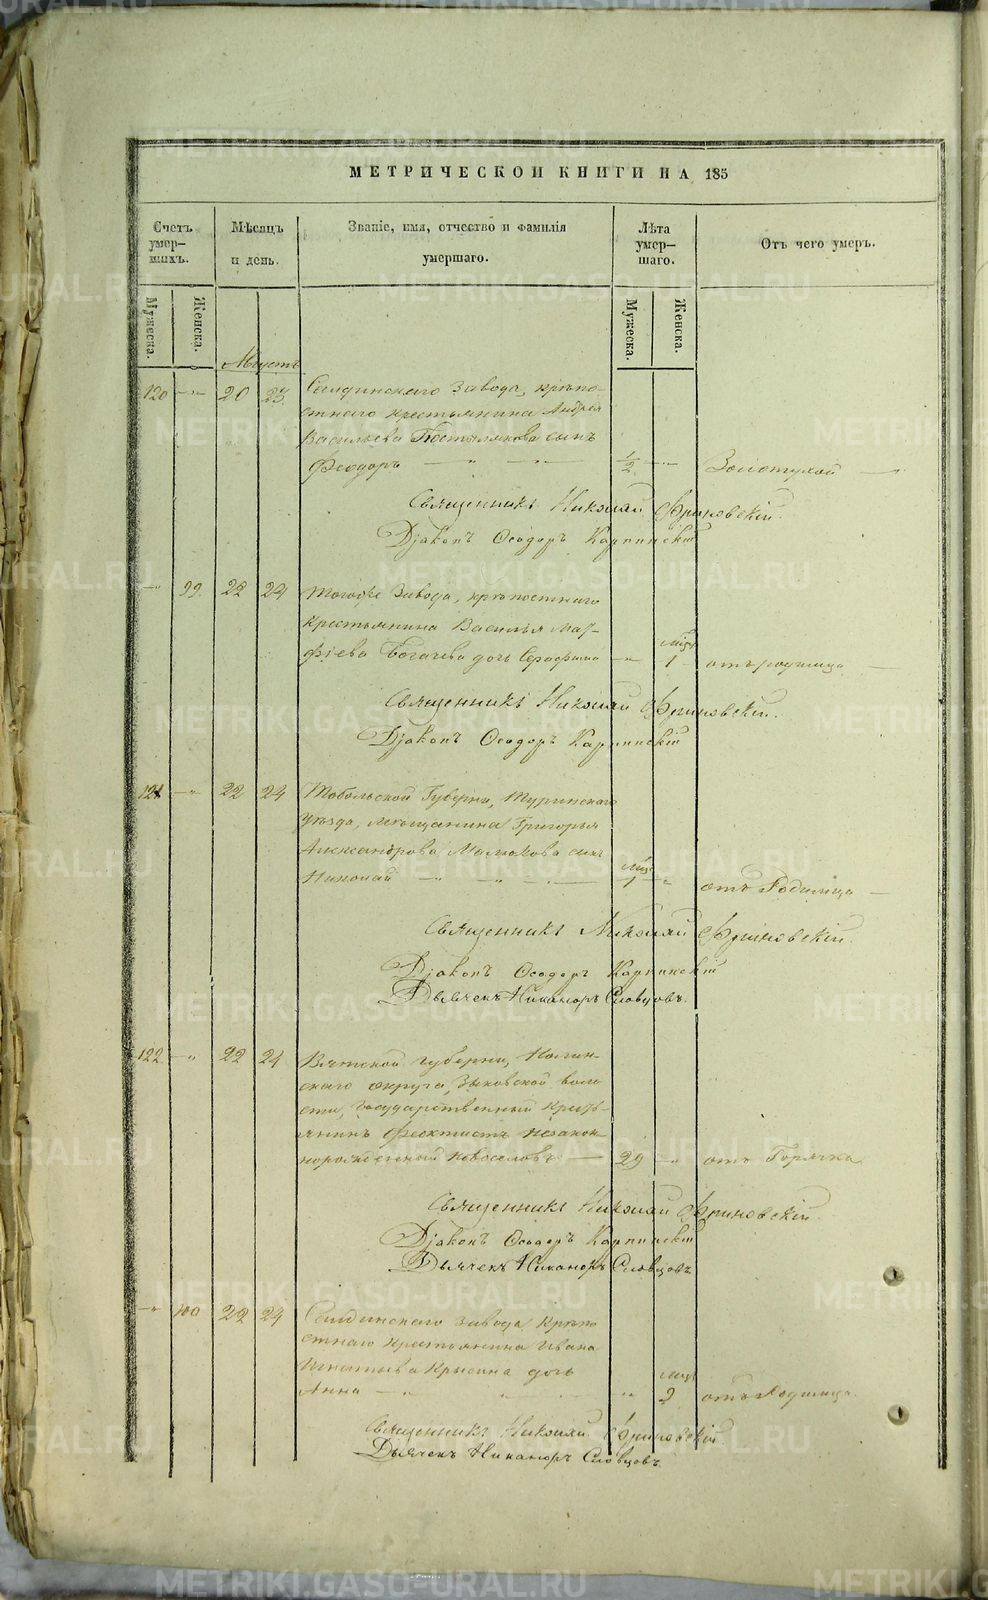 МЕТРИЧЕСКОЙ КНИГИ НА 185
Счетъ умер-шихъ.
Мѣсяцъ и день.
Званіе, имя, отчество и фамилія умершаго.
Лѣта умер-шаго.
Отъ чего умеръ.
Мужеска. Женска.
Мужеска. Женска.
Августъ
120 — „ — 20 23 Салдинскаго Завода, крѣпо-
стнаго крестьянина Андрея
Васильева Постылякова сынъ
Феодоръ — „ — „ — 1/2 — „ — Золотухой —
Священникъ Николай Фриновскій.
Діаконъ Ѳеодоръ Карпинскій
— „ 99. 22 24 Тогоже Завода, крѣпостнаго
Крестьянина Василья Мат-
фіева Богачева дочь Серафима — „ — мѣс. 1 отъ родимца —
Священникъ Николай Фриновскій.
Діаконъ Ѳеодоръ Карпинскій
121 — „ 22 24 Тобольской Губерни, Туринскаго
Уѣзда, мещанина Григорья
Александрова сынъ
Николай — „ — „ — „ — мѣс. 1 — „ отъ Родимца —
Священникъ Николай Фриновскій.
Діаконъ Ѳеодоръ Карпинскій
Дьячекъ Никаноръ Словцовъ.
122 — „ 22 24 Вятской Губерни, Нолин-
скаго округа, Зыковской воло
сти, Государственный Кресть-
янинъ Феоктистъ незакон-
норожденный Новоселовъ — 29 — „ отъ Горячки
Священникъ Николай Фриновскій.
Діаконъ Ѳеодоръ Карпинскій
Дьячекъ Никаноръ Словцовъ
— „ 100 22 24 Салдинскаго Завода Крѣпо
стнаго крестьянина Ивана
Игнатьева дочь
Анна — „ „ „ мѣс. 2 отъ Родимца.
Священникъ Николай Фриновскій
Дьячекъ Никаноръ Словцовъ.
METRIKI.GASO-URAL.RU